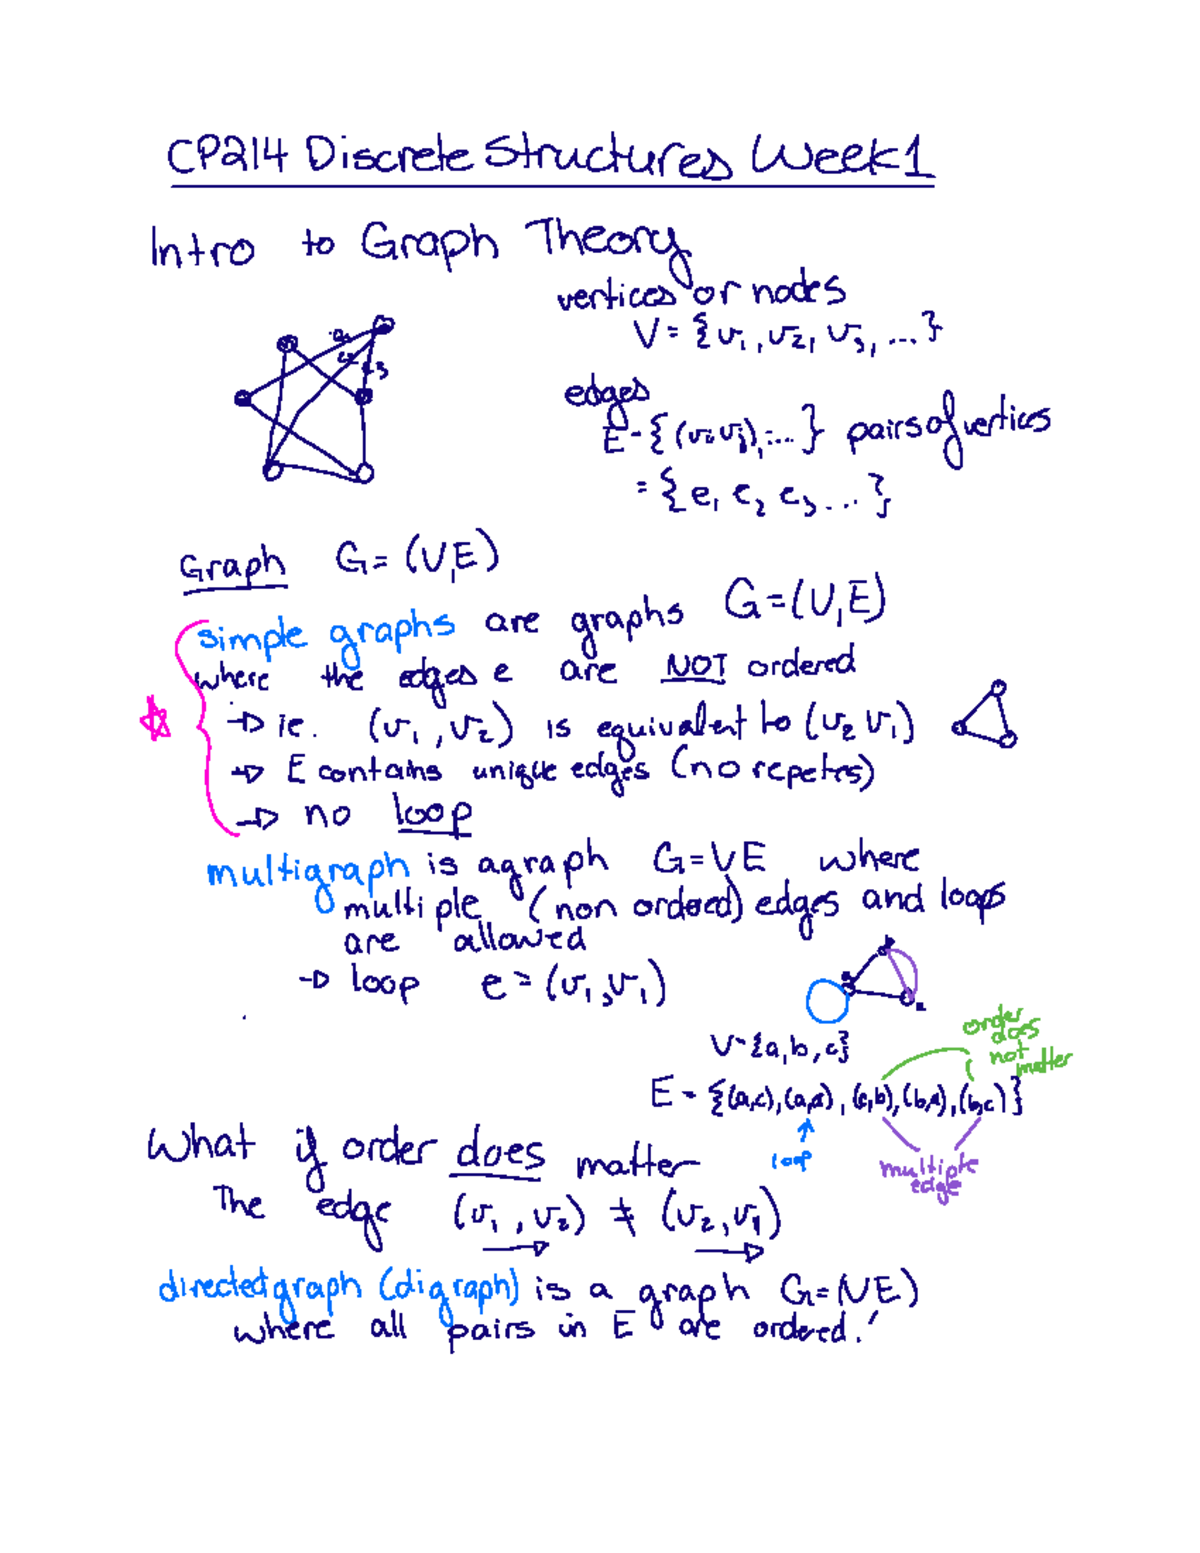 CP214 Discrete Structures Week1
Intro to Graph Theory
vertices or nodes
V = {v₁, v₂, v₃, ...}
edges
E = {(vᵢ vⱼ), ...} pairs of vertices
= {e₁ e₂ e₃ ... }
Graph G = (V, E)
simple graphs are graphs G = (V, E)
where the edges e are NOT ordered
→ ie. (v₁, v₂) is equivalent to (v₂ v₁)
→ E contains unique edges (no repetes)
→ no loop
multigraph is a graph G = V E where
multiple (non ordered) edges and loops
are allowed
→ loop e = (v₁, v₁)
V = {a, b, c}
order
does
not
matter
E = {(a,c), (a,a), (c,b), (b,a), (b,c)}
loop
multiple
edge
What if order does matter
The edge (v₁, v₂) ≠ (v₂, v₁)
directed graph (digraph) is a graph G = (V E)
where all pairs in E are ordered.